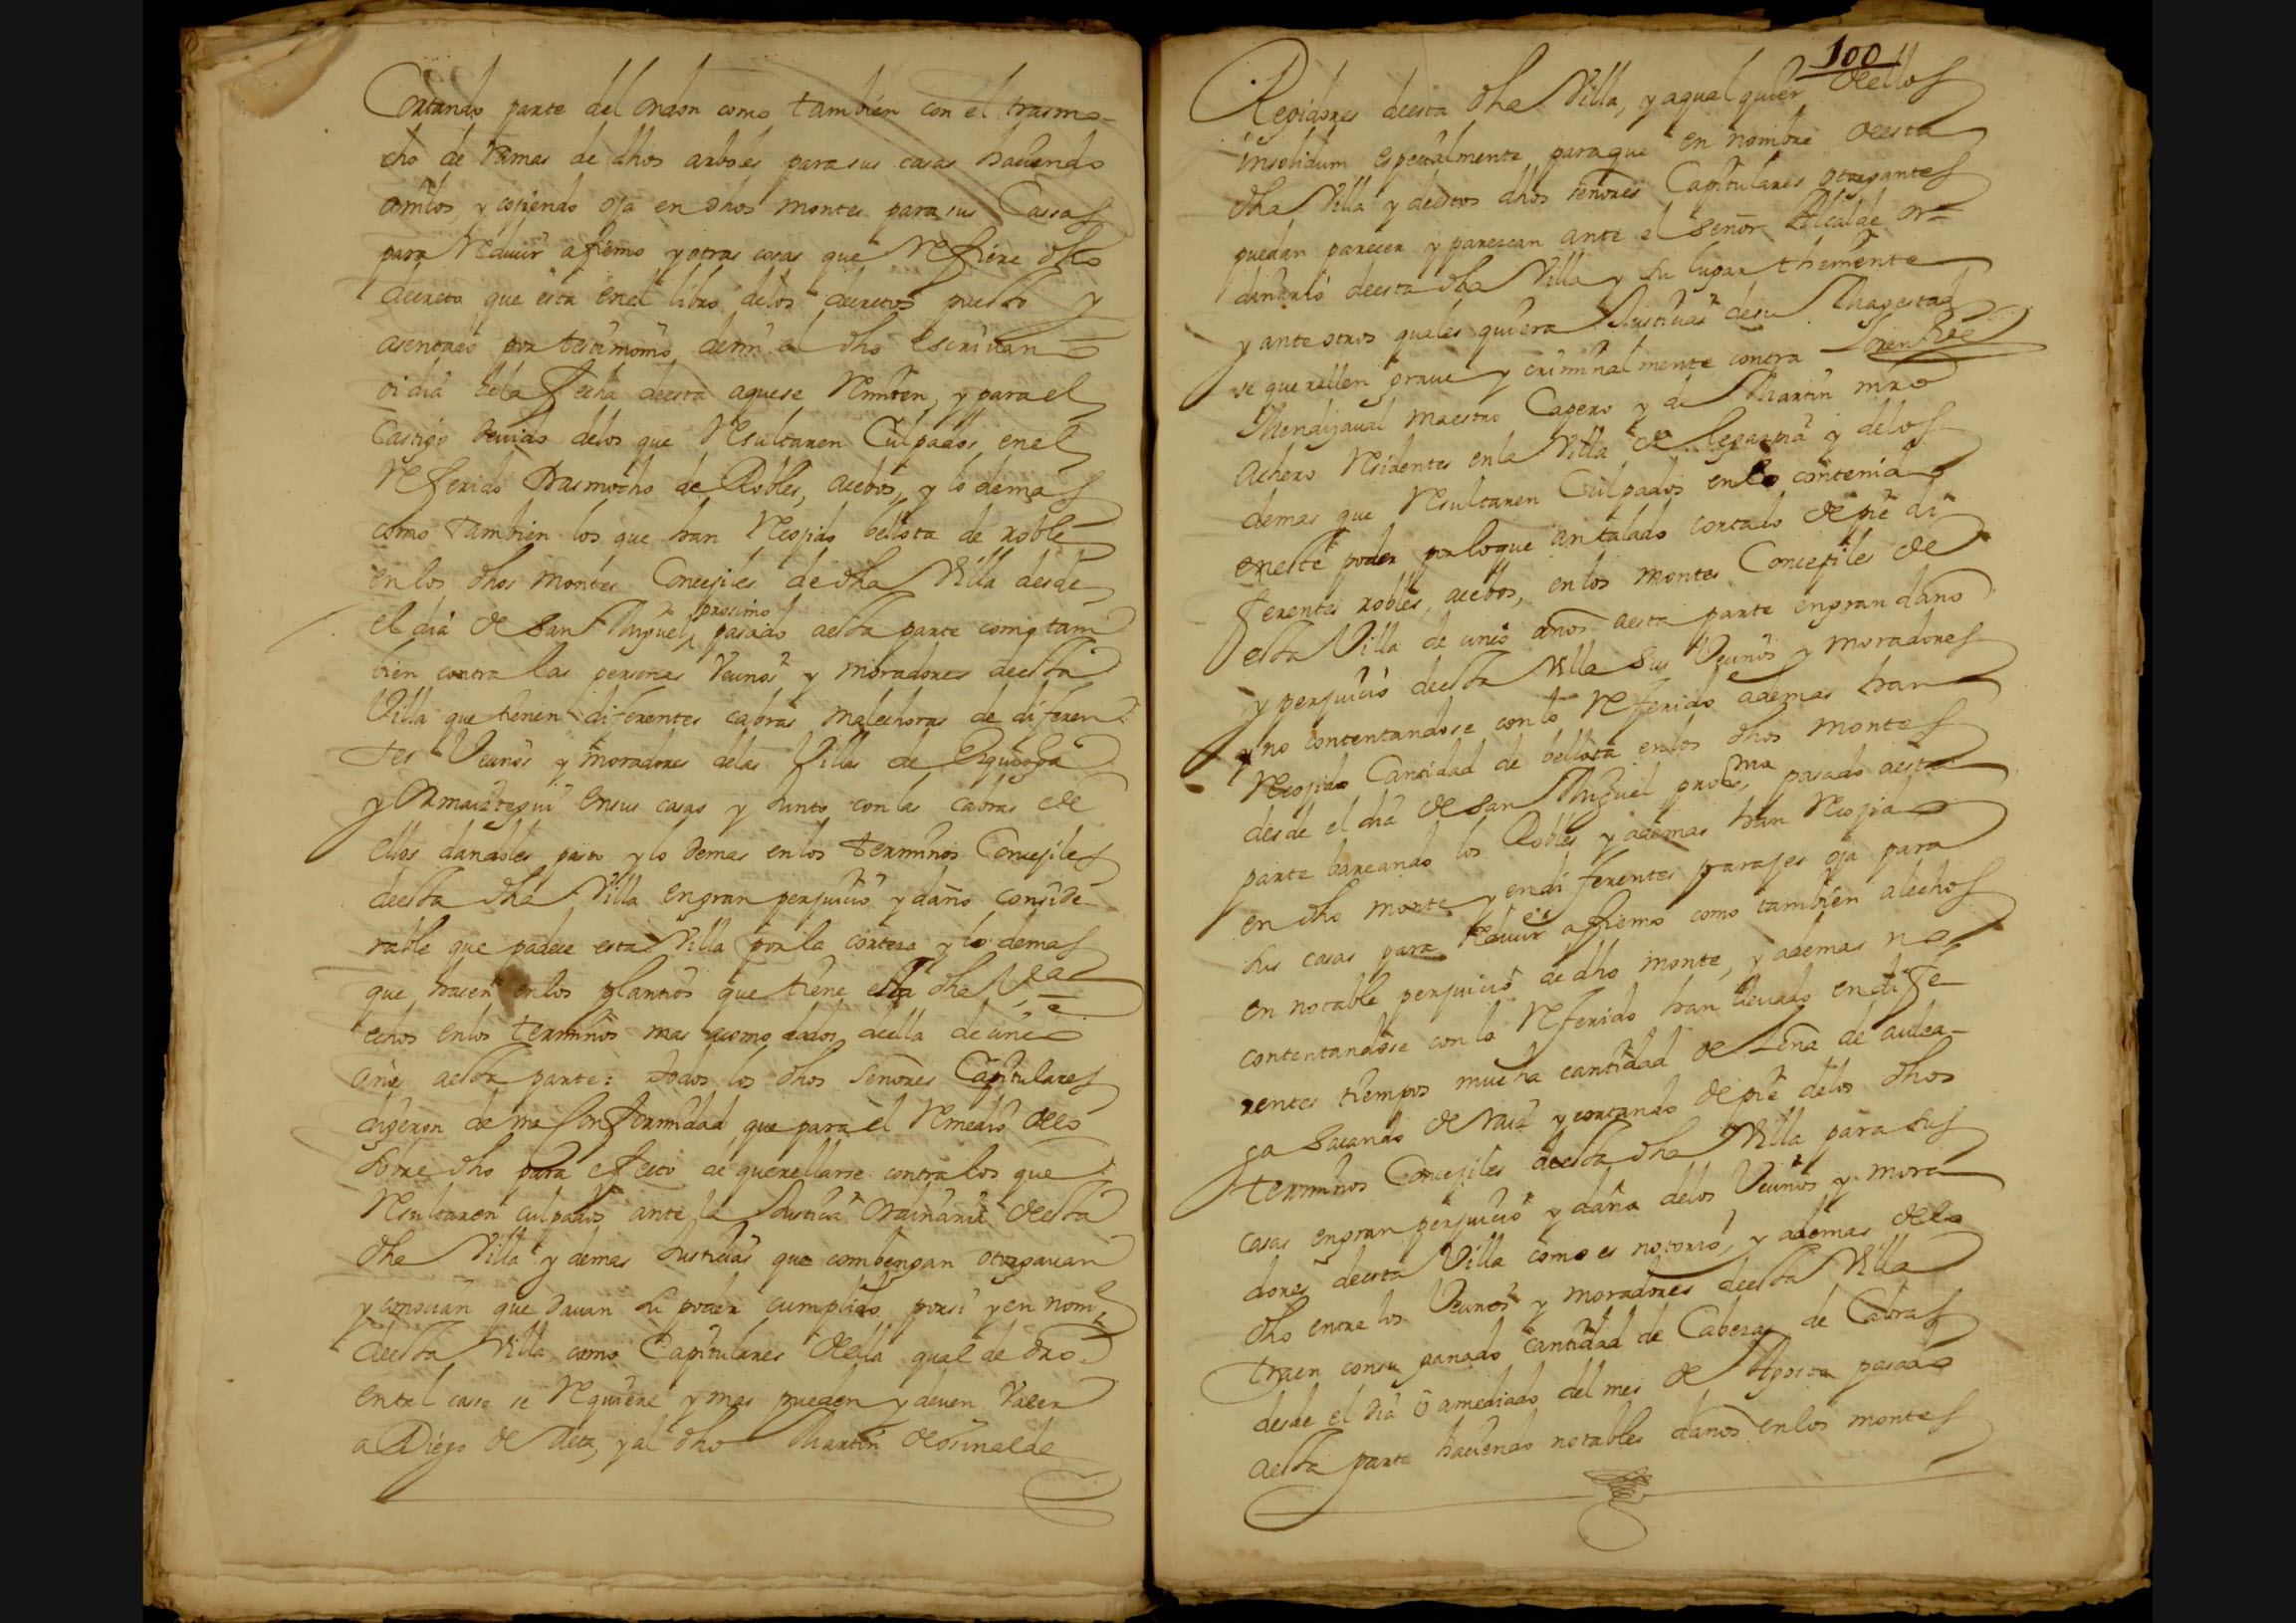 Cortando parte del ondon como tambien con el trasmo-
cho de Ramas de dhos arboles para sus casas haciendo
y cojiendo oja en dhos montes para sus Cassas
para Reducir afiemo y otras cosas que Refiere dho
decreto que esta en el libro delos decretos puesto y
asentado por testimonio demi el dho escriuano
oi dia dela fecha deesta aquese Remiten, y para el
Castigo deuido delos que Resultaren Culpados, enel
Referido trasmocho de Robles, acebos, y lo demas
como tambien los que han Recojido bellota de roble
en los dhos montes Concejiles de dha Villa desde
el dia de San Miguel proximo pasado aesta parte como tam
bien contra las personas Vecinos y moradores deesta
Villa que tienen diferentes cabras malechoras de diferen
tes Vecinos y moradores delas Villas de Ezquioga
y Ormaiztegui en sus casas y Junto con las cabras de
ellos dandoles pasto y lo demas en los terminos Concejiles
deesta dha Villa en gran perjuicio y daño conside-
rable que padece esta Villa por la corteza y lo demas
que hacen en los plantios que tiene esta dha Va
echos en los terminos mas acomodados deella de cinco
años aesta parte: todos los dhos señores Capitulares
digeron de una Conformidad que para el Remedio delo
sobre dho para efecto de querellarse contra los que
Resultaren culpados ante la Justicia Ordinaria deesta
dha Villa y demas Justicias que combengan otorgauan
y conocian que dauan su poder cumplido por si y en nome
deesta Villa como Capitulares deella qual de dro
en tal caso se Requiere y mas pueden y deuen Valer
a Diego de Aeta, y al dho Martin de osinalde
100
Regidores deesta dha Villa, y a qualquier deellos
insolidum especialmente para que en nombre deesta
dha Villa y deestos dhos señores Capitulares otorgantes
puedan parecer y parezcan ante el señor Alcalde or-
dinario deesta dha Villa y su lugar theniente
y ante otros quales quiera Justicias desu Magestad
se querellen graue y criminalmente contra Lorenzo de
Mendizaual maestro Capero y de Martin mro
achero Residentes en la Villa de legazpia y delos
demas que Resultaren Culpados en lo contenido
en este poder por lo que an talado cortado de pie di
ferentes robles, acebos, en los montes Concejiles de
esta Villa de cinco años aesta parte en gran daño
y perjuicio deesta Villa sus Vecinos y moradores
y no contentandose con lo Referido ademas han
Recojido Cantidad de bellota en los dhos montes
desde el dia de San Miguel proximo pasado aesta
parte bareando los Robles y ademas han Recojido
en dho monte y en diferentes parajes oja para
sus casas para Reducir afiemo como tambien alechos
en notable perjuicio de dho monte, y ademas no
contentandose con lo Referido han lleuado en dife-
rentes tiempos mucha cantidad de Leña de aulea-
ga sacando de Raiz y cortando de pie delos dhos
terminos Concejiles deesta dha Villa para sus
casas en gran perjuicio y daño delos Vecinos y mora
dores deesta Villa como es notorio, y ademas delo
dho entre los Vecinos y moradores deesta Villa
traen con su ganado cantidad de Cabezas de Cabras
desde el dia o amediado del mes de Agosto pasado
aesta parte haciendo notables daños en los montes